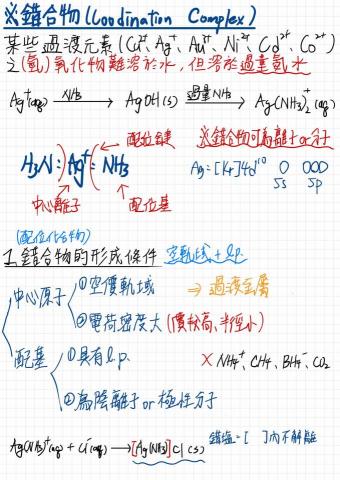 ※錯合物(Coodination Complex)
某些過渡元素(Cu²⁺, Ag⁺, Au⁺, Ni²⁺, Cd²⁺, Co²⁺)
之(氫)氧化物難溶於水，但溶於過量氨水
Ag⁺(aq) —NH₃→ AgOH(s) —過量NH₃→ Ag(NH₃)₂⁺(aq)
配位鍵
※錯合物可為離子or分子
H₃N:)Ag⁺(:NH₃
Ag=[Kr]4d¹⁰ O OOO
5s 5p
中心離子 配位基
(配位化合物)
1.錯合物的形成條件 空軌域+l.p.
中心原子 ①空價軌域 ⇒過渡金屬
②電荷密度大(價較高、半徑小)
配基 ①具有l.p. × NH₄⁺, CH₄, BH₄⁻, CO₂
②為陰離子or極性分子
Ag(NH₃)⁺(aq) + Cl⁻(aq) → [Ag(NH₃)]Cl(s) 錯鹽=[ ]內不解離